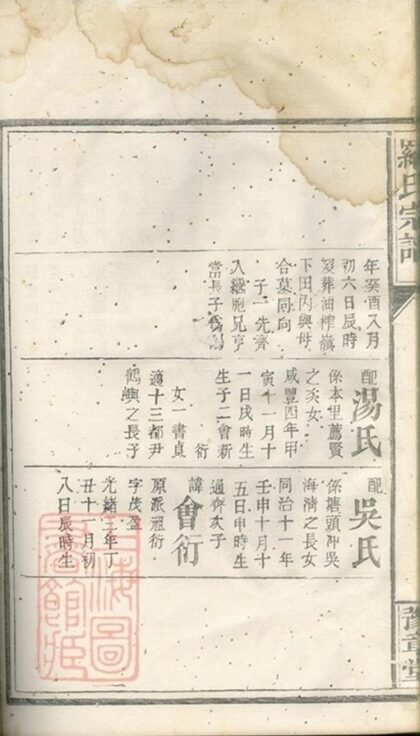 羅氏宗譜
豫章堂
年癸酉八月
初六日辰時
歿葬油榨嶺
下田內與母
合墓同向
子一先齊
入繼胞兄亨
當長子為
配湯氏
係本里薦賢
之次女
咸豐四年甲
寅十一月十
一日戌時生
生子二會新
衍
女一書貞
適十三都尹
鶴嶼之長子
配吳氏
係塘頭沖吳
海清之長女
同治十一年
壬申十月十
五日申時生
通齊次子
諱會衍
原派祖衍
字茂盈
光緒三年丁
丑十一月初
八日辰時生
上海圖
書館藏